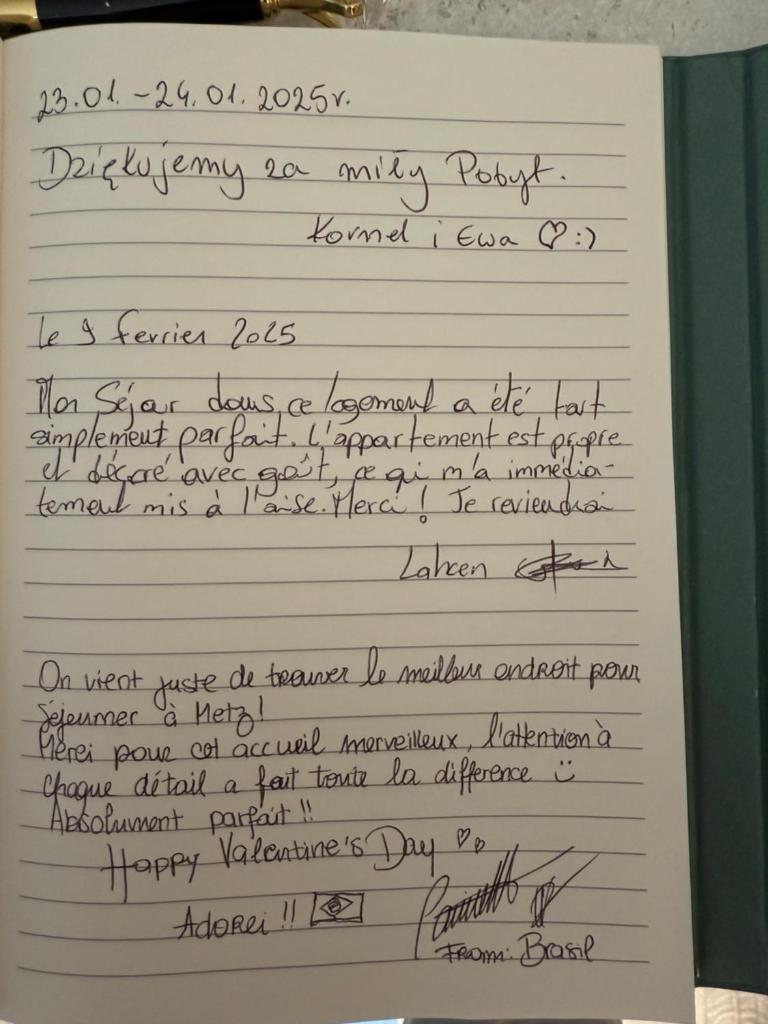 23.01. - 24.01. 2025r.
Dziękujemy za miły Pobyt.
Kornel i Ewa ♡ :)
le 9 fevrier 2025
Mon Séjour dans ce logement a été tout
simplement parfait. L'appartement est propre
et décoré avec goût, ce qui m'a immédia-
tement mis à l'aise. Merci ! Je reviendrai
Lahcen
On vient juste de trouver le meilleur endroit pour
séjourner à Metz!
Merci pour cet accueil merveilleux, l'attention à
chaque détail a fait toute la difference ☺
Absolument parfait !!
Happy Valentine's Day ♡♡
Adorei !!
From: Brasil